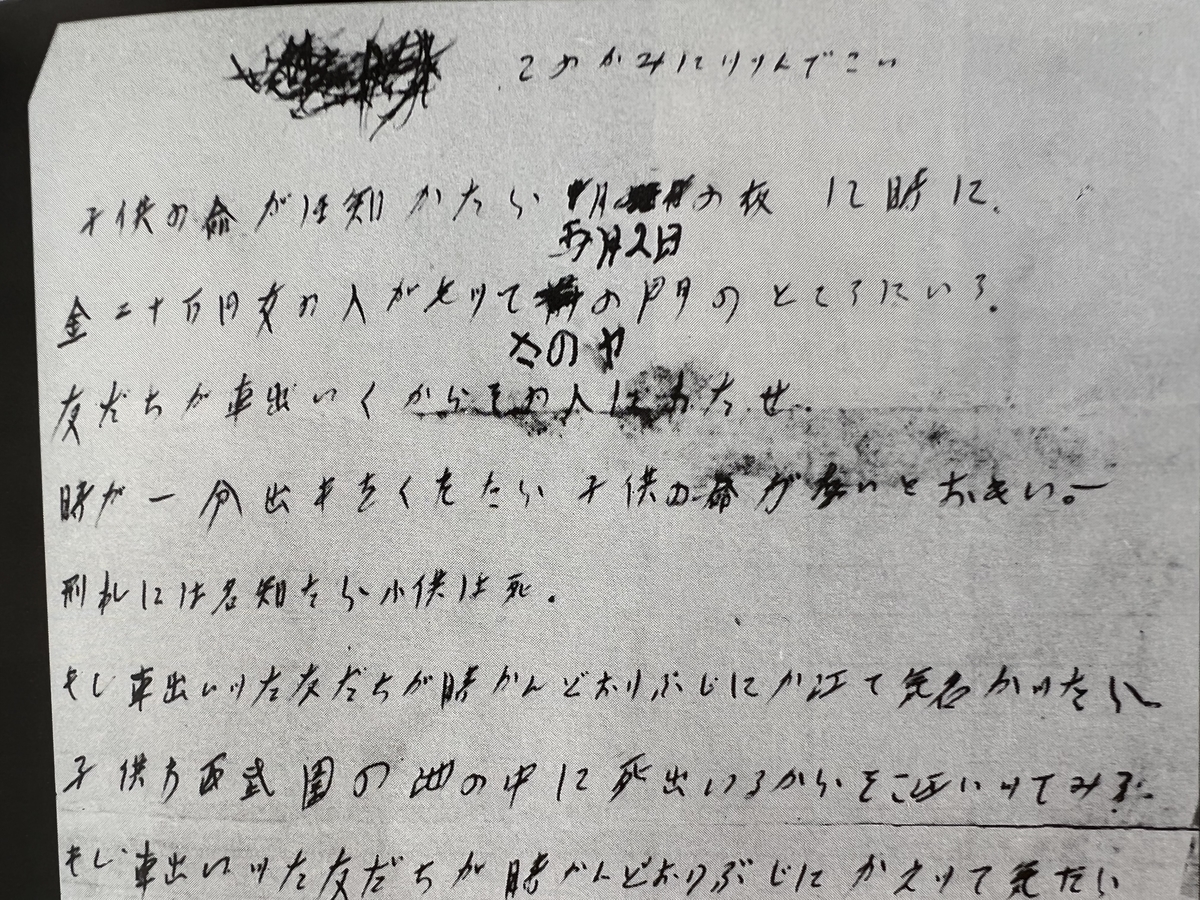 このかみにツツんでこい
子供の命がほ知かたら 月 の夜 12時に、
五月2日
金二十万円女の人がもツて の門のところにいろ。
さのヤ
友だちが車出いくからその人にわたせ。
時が一分出もをくをたら子供の命がないとおもい。ー
刑札には名知たら小供は死。
もし車出いツた友だちが時かんどおりぶじにか江て気名かツたら
子供わ西武園の池の中に死出いるからそこ江いツてみろ。
もし車出いツた友だちが時かんどおりぶじにかえツて気たら